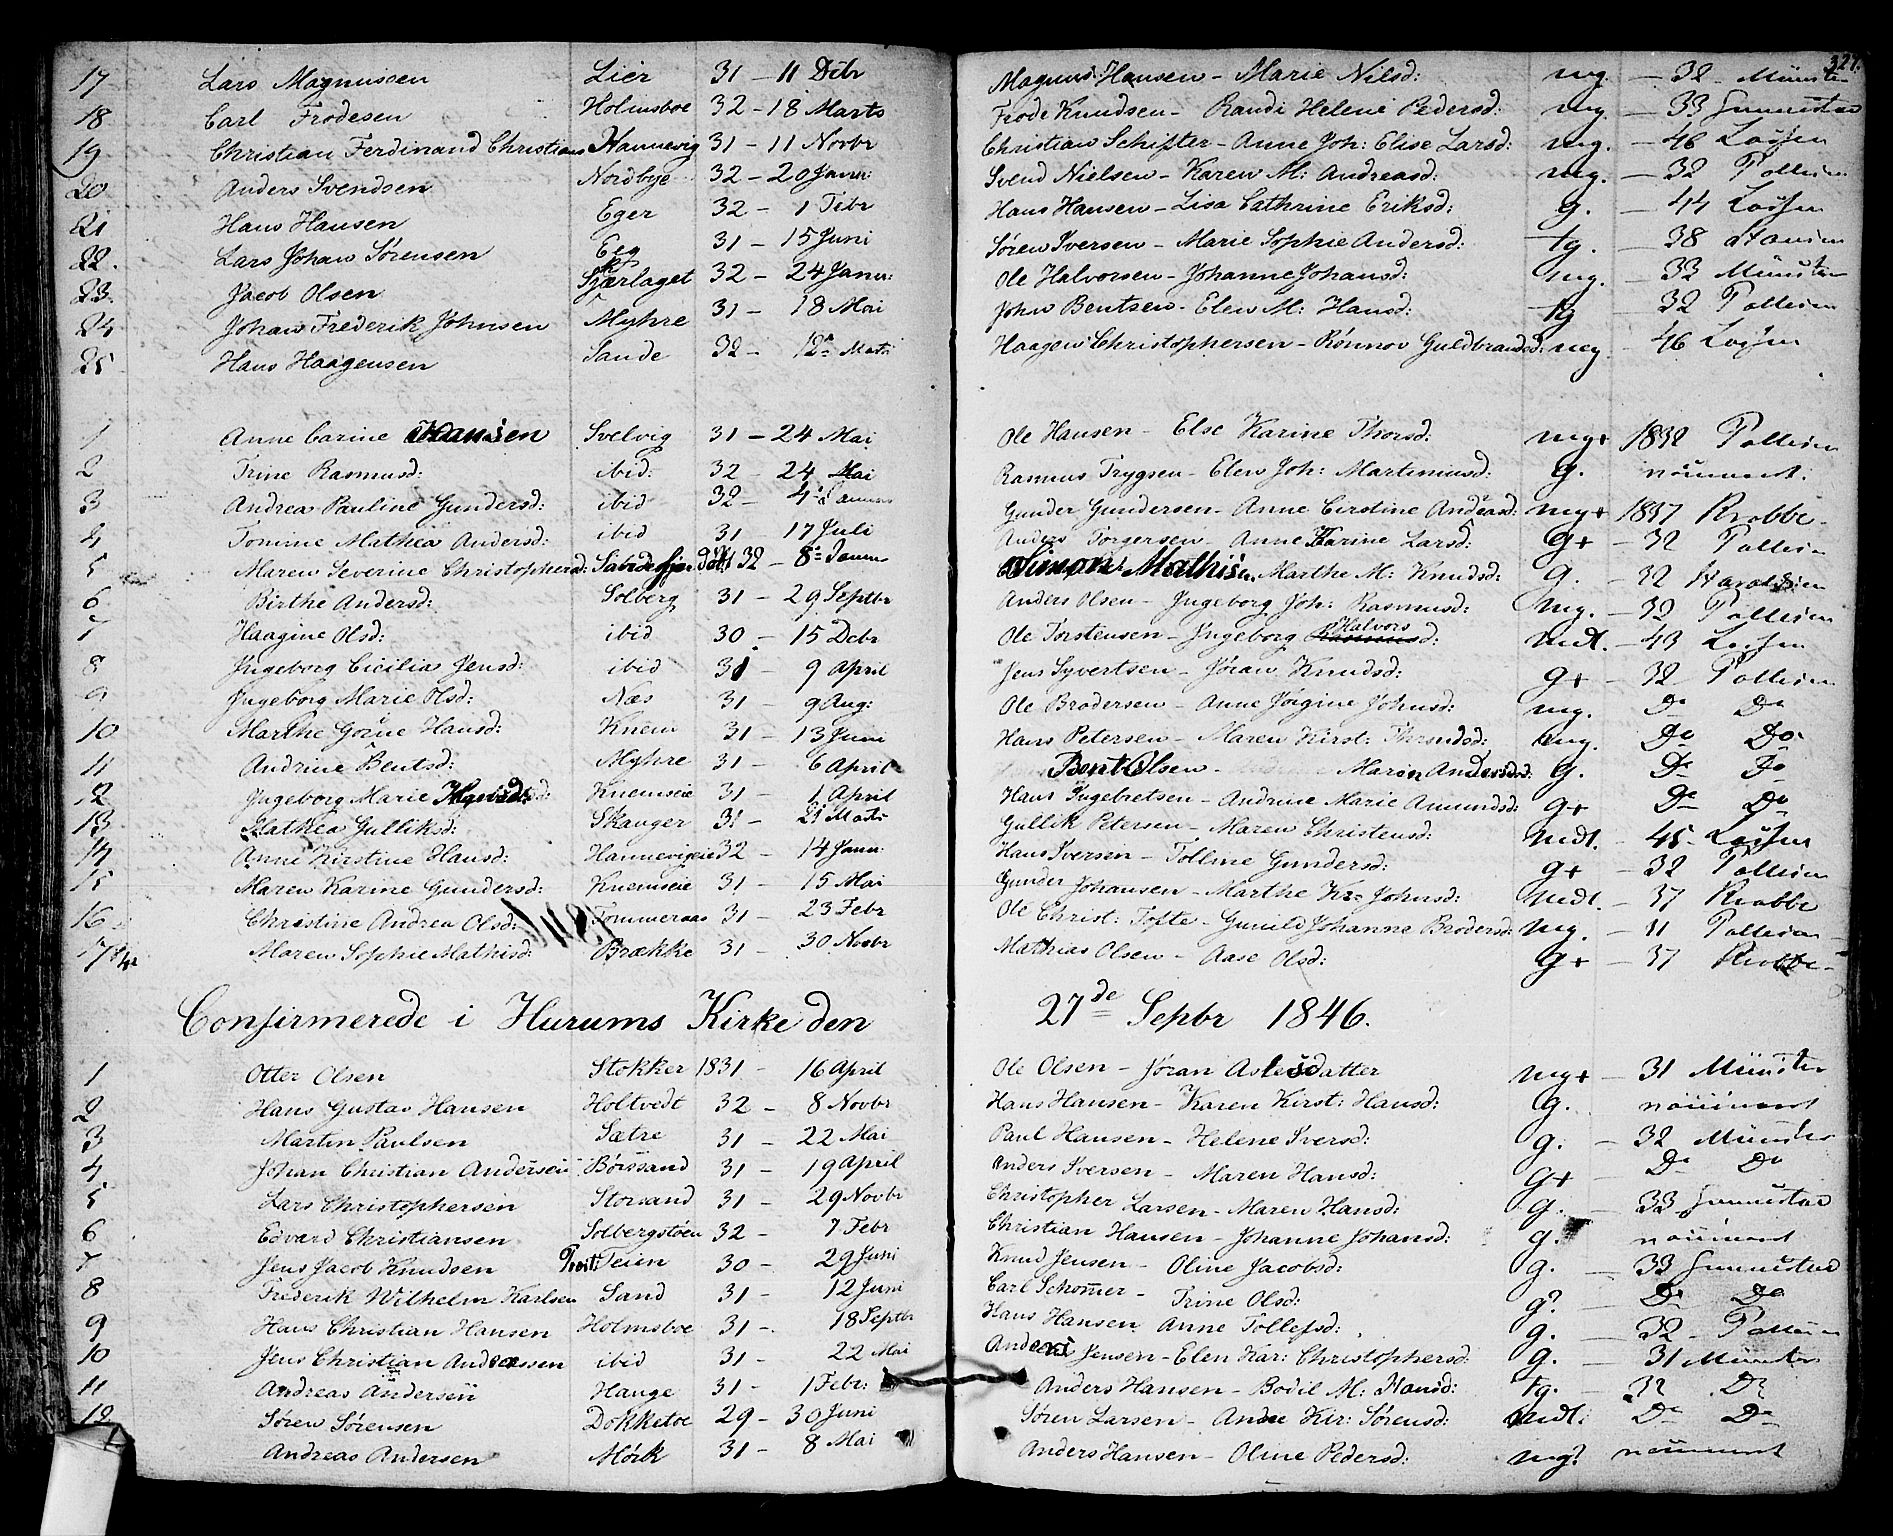 327.
17 Lars Magnussen Lier 31 - 11 Debr Magnus Hansen - Marie Nilsd: mg. - 32 - Münster
18 Carl Frodesen Holmsboe 32 - 18 Marts Frode Knudsen - Randi Helene Pedersd: mg. - 33
19 Christian Ferdinand Christians Hannevig 31 - 11 Novbr Christian Schifter - Anne Joh: Elise Larsd: mg. - 46
20 Anders Svendsen Nordbye 32 - 20 Janu: Svend Nielsen - Karen M: Andreasd: mg. - 32
21 Hans Hansen Eger 32 - 1 Febr Hans Hansen - Lisa Cathrine Eriksd: g. - 44
22. Lars Johan Sørensen Eeg 31 - 15 Juni Søren Iversen - Marie Sophie Andersd: tg. - 38
23. Jacob Olsen Skjærlaget 32 - 24 Janu: Ole Halvorsen - Johanne Johansd: mg. - 33 Münster
24 Johan Frederik Johnsen Myhre 31 - 18 Mai John Bentsen - Elen M: Hansd: tg - 32
25 Hans Haagensen Sande 32 - 12 Marts Haagen Christophersen - Rönnov Guldbrandsd: mg - 46
1 Anne Carine Hansen Svelvig 31 - 24 Mai Ole Hansen Else Karine Thorsd: mg+ 1832
2 Trine Rasmusd: ibid: 32 - 24 Mai Rasmus Trygsen - Elen Joh: Martinusd: g.
3 Andrea Pauline Gundersd: ibid 32 - 4 Gunder Gundersen - Anne Cirstine Andreasd: mg+ 1837 Krabbe
4 Tomine Mathea Andersd: ibid 31 17 Juli Anders Torgersen - Anne Karine Larsd: g+ - 32
5 Maren Severine Christophersd: 32 - 8 Simon Mathisen Marthe M: Knudsd: g. - 32
6 Birthe Andersd: Solberg 31 - 29 Septbr Anders Olsen - Ingeborg Joh: Rasmusd: mg. - 32
7 Haagine Olsd: ibid 30 - 15 Debr Ole Torstensen - Ingeborg Halvorsd: mdt. - 43
8 Ingeborg Cicilia Jensd: ibid 31 - 9 April Jens Syvertsen - Jöran Knudsd: g+ - 32
9 Ingeborg Marie Olsd: Næs 31 - 9 Aug: Ole Brodersen - Anne Jörgine Johnsd: mg. Do Do
10 Marthe Gorine Hansd: Knem 31 - 13 Juni Hans Petersen - Maren Kirst: mg. Do Do
11 Andrine Bentsd: Myhre 31 - 6 April Bent Olsen - Maren Andersd: g. Do Do
12 Ingeborg Marie Knemseie 31 - 1 April Hans Ingebretsen - Andrine Marie Amundsd: g+ Do Do
13 Mathea Gulliksd: Skanger 31 - 21 Marts Gullik Petersen - Maren Christensd: mdt. - 45 -
14 Anne Kirstine Hansd: Hannevigeie 32 - 14 Janu: Hans Iversen - Tolline Gundersd: g+ - 32
15 Maren Karine Gundersd: Knemseie 31 - 15 Mai Gunder Johansen - Marthe Kr: Johnsd: mdt. - 37 Krabbe
16 Christine Andrea Olsd: Tommeraas 31 - 23 Febr Ole Christ: Tofte - Gunild Johanne Brodersd: mg. - 11
17 Maren Sophie Mathisd: Brække 31 - 30 Novbr Mathias Olsen - Aase Olsd: g+ - 37 Krabbe
Confirmerede i Hurums Kirke den 27de Sepbr 1846.
1 Otter Olsen Stokker 1831 - 16 April Ole Olsen - Jöran Aslesdatter mg+ - 31 Münster
2 Hans Gustav Hansen Holtvedt 32 - 8 Novbr Hans Hansen - Karen Kirst: Hansd: g.
3 Martin Paulsen Sætre 31 - 22 Mai Paul Hansen - Helene Iversd: g. - 32 Münster
4 Johan Christian Andersen Börssand 31 - 19 April Anders Iversen - Maren Hansd: g+ - Do Do
5 Lars Christophersen Storsand 31 - 29 Novbr Christopher Larsen - Maren Hansd: g. - 33
6 Edvard Christiansen Solbergstöen 32 - 7 Febr Christian Hansen - Johanne Johansd: g.
7 Jens Jacob Knudsen Prest: Teien 30 - 29 Juni Knud Jensen - Oline Jacobsd: g. - 33
8 Frederik Wilhelm Karlsen Sand 31 - 12 Juni Carl Schömer - Trine Olsd: g? - Do Do
9 Hans Christian Hansen Holmsboe 31 - 18 Septbr Hans Hansen Anne Tollefsd: g. - 32 -
10 Jens Christian Andersen ibid 31 - 22 Mai Anders Jensen - Elen Kar: Christophersd: g. - 31 Münster
11 Andreas Andersen Hauge 31 - 1 Febr: Anders Hansen - Bodil M: Hansd: tg. - 32 Do
12 Søren Sørensen Dokketoe 29 - 30 Juni Søren Larsen - Anne Kir: Sørensd: mdt: - Do Do
Andreas Andersen Mörk 31 - 8 Mai Anders Hansen - Oline Pedersd: mg?